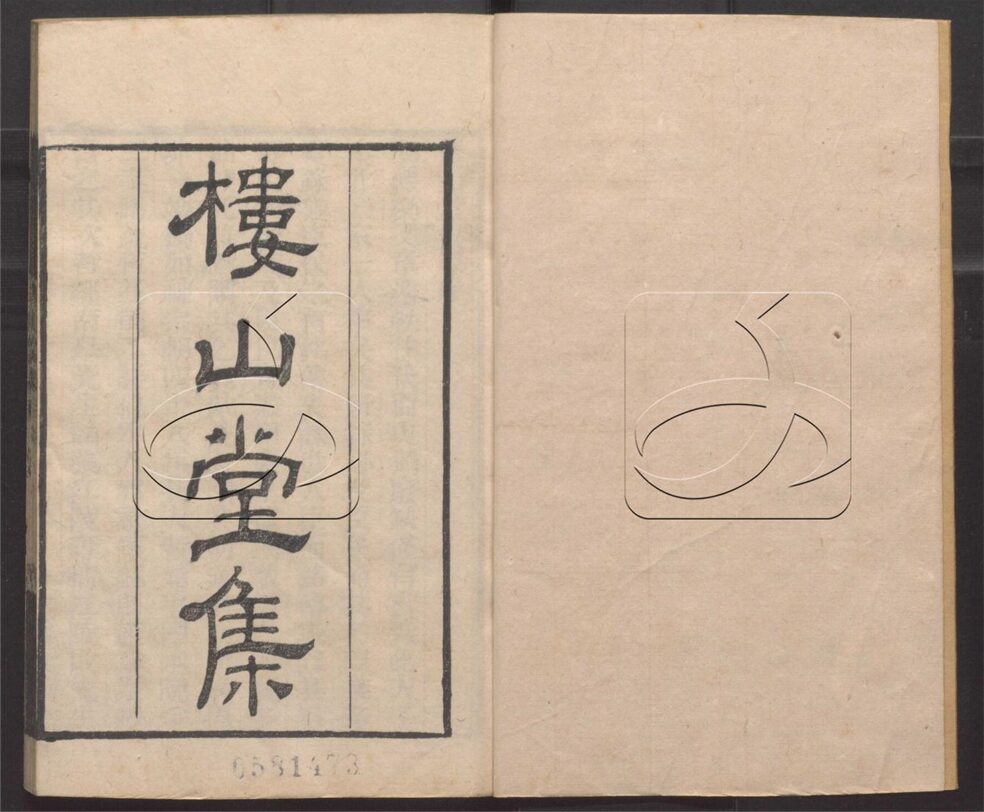 樓山堂集
0581473